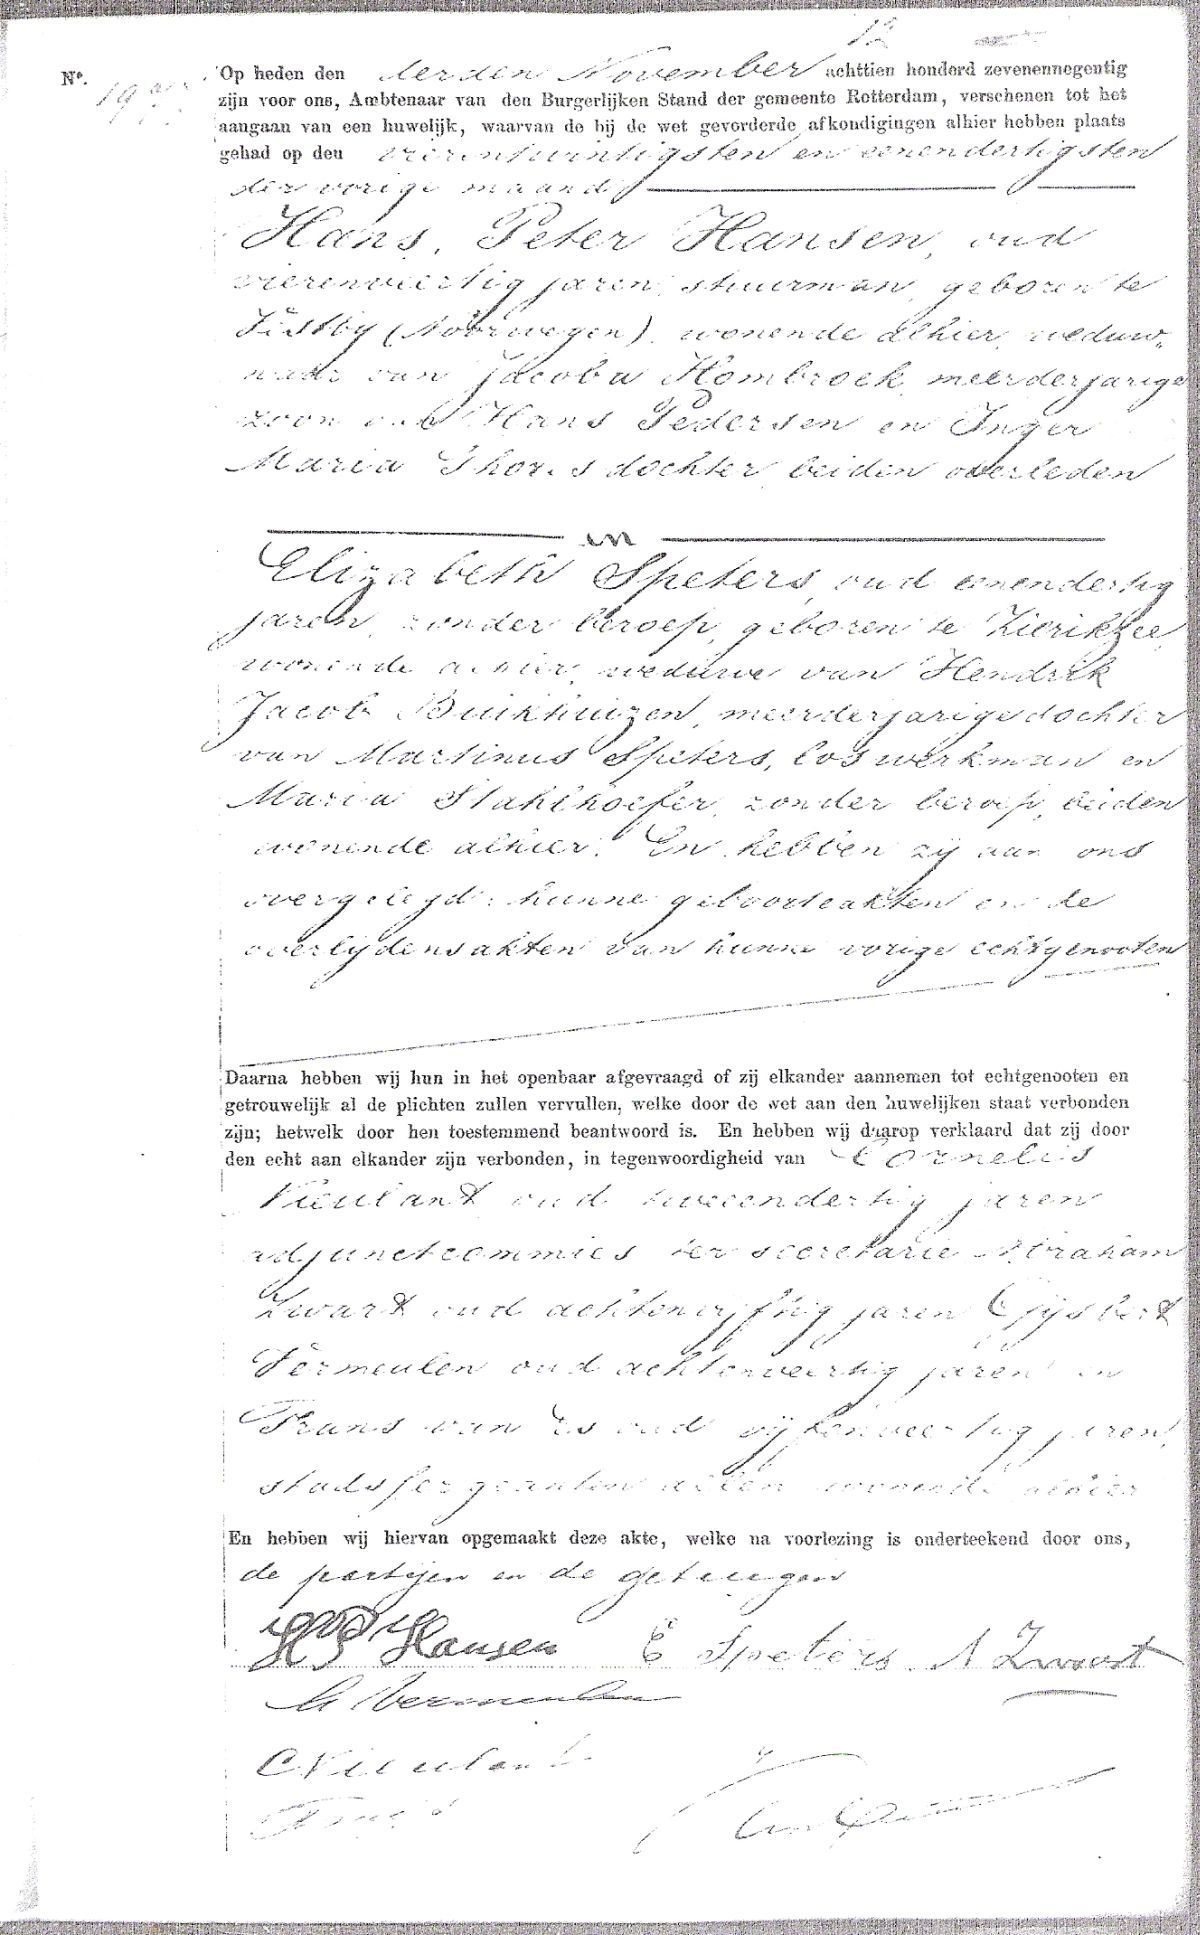 12
Nº. 19
Op heden den derden November achttien honderd zevenennegentig
zijn voor ons, Ambtenaar van den Burgerlijken Stand der gemeente Rotterdam, verschenen tot het
aangaan van een huwelijk, waarvan de bij de wet gevorderde afkondigingen alhier hebben plaats
gehad op den vierentwintigsten en eenendertigsten
der vorige maand
Hans Peter Hansen, oud
vierenveertig jaren, stuurman, geboren te
(Noorwegen), wonende alhier, weduw-
naar van Jacoba Hombroek, meerderjarige
zoon van Hans Pedersen en Inger
Maria Thorsdochter, beiden overleden
en
Elizabeth Speters, oud eenendertig
jaren, zonder beroep, geboren te Zierikzee,
wonende alhier, weduwe van Hendrik
Jacob Buikhuizen, meerderjarige dochter
van Martinus Speters, loswerkman en
Maria Stahlhoefer, zonder beroep, beiden
wonende alhier. En hebben zij aan ons
overgelegd: hunne geboorteakten en de
overlijdensakten van hunne vorige echtgenooten
Daarna hebben wij hun in het openbaar afgevraagd of zij elkander aannemen tot echtgenooten en
getrouwelijk al de plichten zullen vervullen, welke door de wet aan den huwelijken staat verbonden
zijn; hetwelk door hen toestemmend beantwoord is. En hebben wij daarop verklaard dat zij door
den echt aan elkander zijn verbonden, in tegenwoordigheid van Cornelis
Vieulant oud tweeendertig jaren
adjunctcommies ter secretarie Abraham
Zwart oud achtenvijftig jaren Gijsbert
Vermeulen oud achtenveertig jaren en
Frans van Es oud vijfenveertig jaren,
stadssergeanten allen wonende alhier
En hebben wij hiervan opgemaakt deze akte, welke na voorlezing is onderteekend door ons,
de partijen en de getuigen
H P Hansen E Speters A Zwart
G Vermeulen
C Vieulant